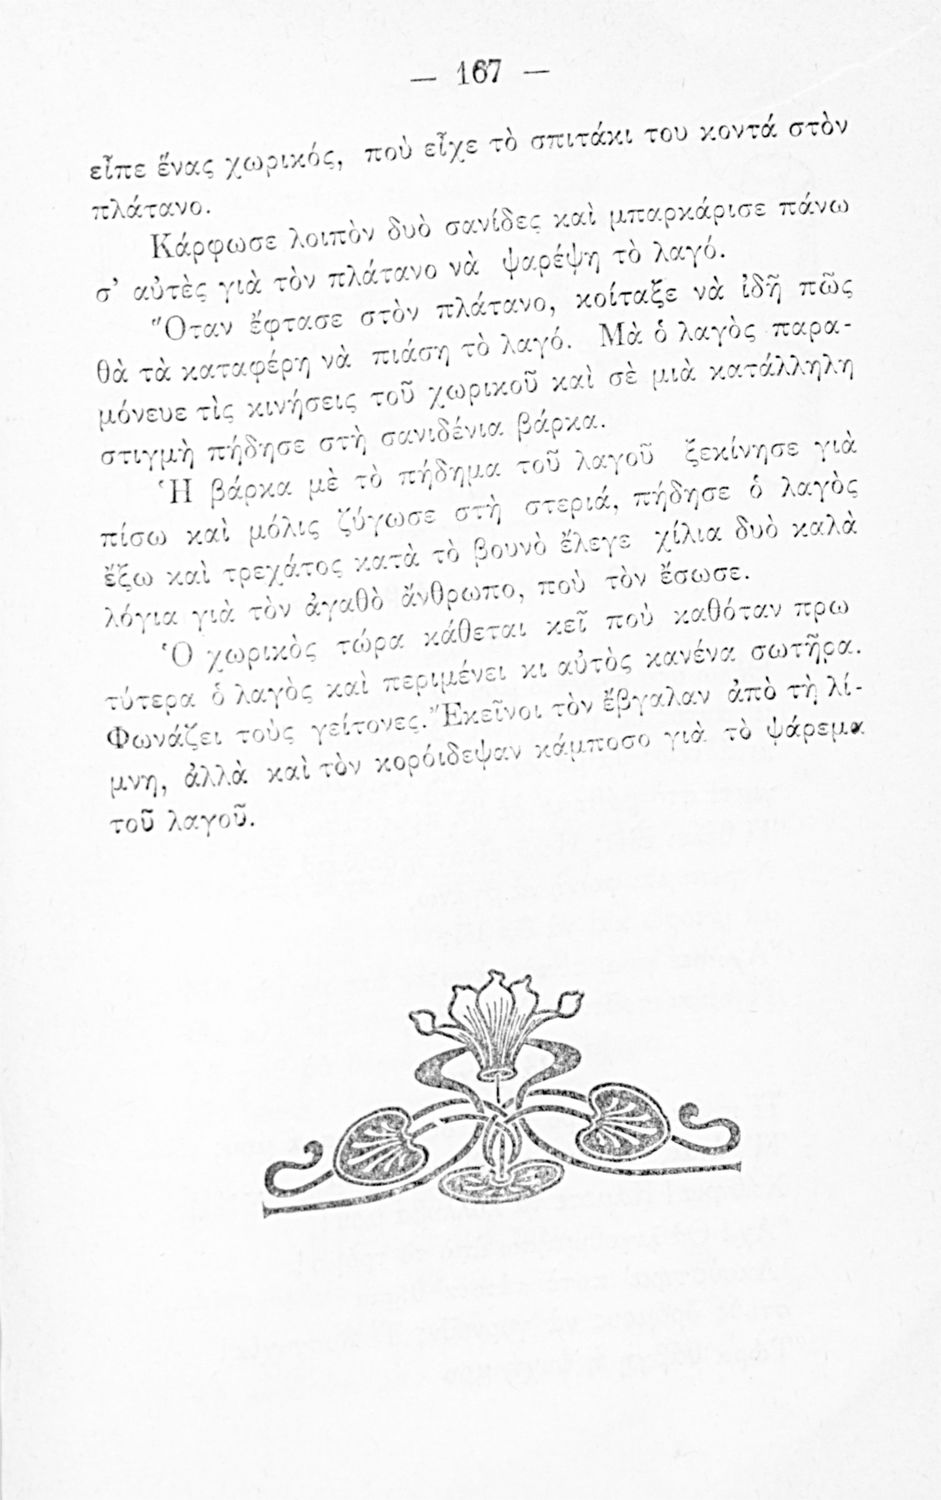 — 167 —
εἶπε ἕνας χωρικός, ποὺ εἶχε τὸ σπιτάκι του κοντά στὸν
πλάτανο.
Κάρφωσε λοιπὸν δυὸ σανίδες καὶ μπαρκάρισε πάνω
σ' αὐτὲς γιὰ τὸν πλάτανο νὰ ψαρέψῃ τὸ λαγό.
Ὅταν ἔφτασε στὸν πλάτανο, κοίταξε νὰ ἰδῇ πῶς
θὰ τὰ καταφέρῃ νὰ πιάσῃ τὸ λαγό. Μὰ ὁ λαγὸς παρα-
μόνευε τὶς κινήσεις τοῦ χωρικοῦ καὶ σὲ μιὰ κατάλληλη
στιγμὴ πήδησε στὴ σανιδένια βάρκα.
Ἡ βάρκα μὲ τὸ πήδημα τοῦ λαγοῦ ξεκίνησε γιὰ
πίσω καὶ μόλις ζύγωσε στὴ στεριά, πήδησε ὁ λαγὸς
ἔξω καὶ τρεχάτος κατὰ τὸ βουνὸ ἔλεγε χίλια δυὸ καλὰ
λόγια γιὰ τὸν ἀγαθὸ ἄνθρωπο, ποὺ τὸν ἔσωσε.
Ὁ χωρικὸς τώρα κάθεται κεῖ ποὺ καθόταν πρω
τύτερα ὁ λαγὸς καὶ περιμένει κι αὐτὸς κανένα σωτῆρα.
Φωνάζει τοὺς γείτονες. Ἐκεῖνοι τὸν ἔβγαλαν ἀπὸ τὴ λί-
μνη, ἀλλὰ καὶ τὸν κορόιδεψαν κάμποσο γιὰ τὸ ψάρεμα
τοῦ λαγοῦ.